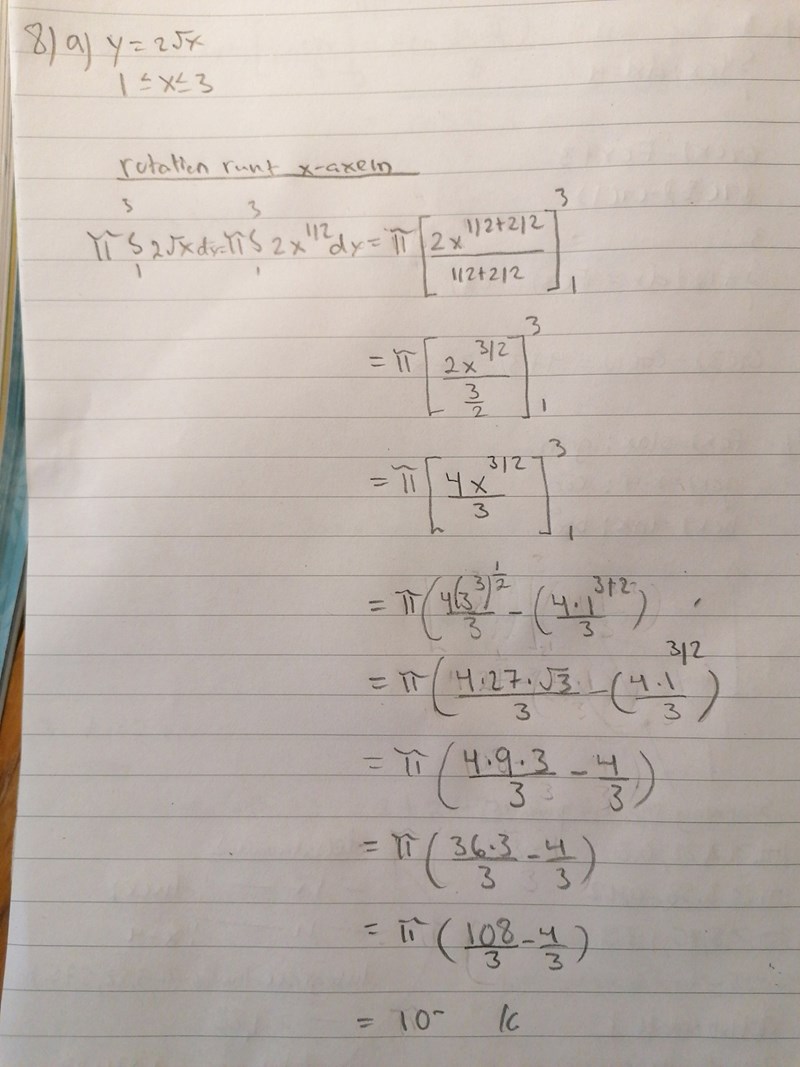 8) a) y = 2√x
1 ≤ x ≤ 3
rotation runt x-axeln
π ∫₁³ 2√x dx = π ∫₁³ 2x^1/2 dx = π [ 2x^1/2+2/2 / 1/2+2/2 ]₁³
= π [ 2x^3/2 / (3/2) ]₁³
= π [ 4x^3/2 / 3 ]₁³
= π ( 4(3³)^1/2 / 3 - ( 4·1^3/2 / 3 )
= π ( 4·27·√3 / 3 - ( 4·1^3/2 / 3 )
= π ( 4·9·3 / 3 - 4/3 )
= π ( 36·3 / 3 - 4/3 )
= π ( 108/3 - 4/3 )
= 10